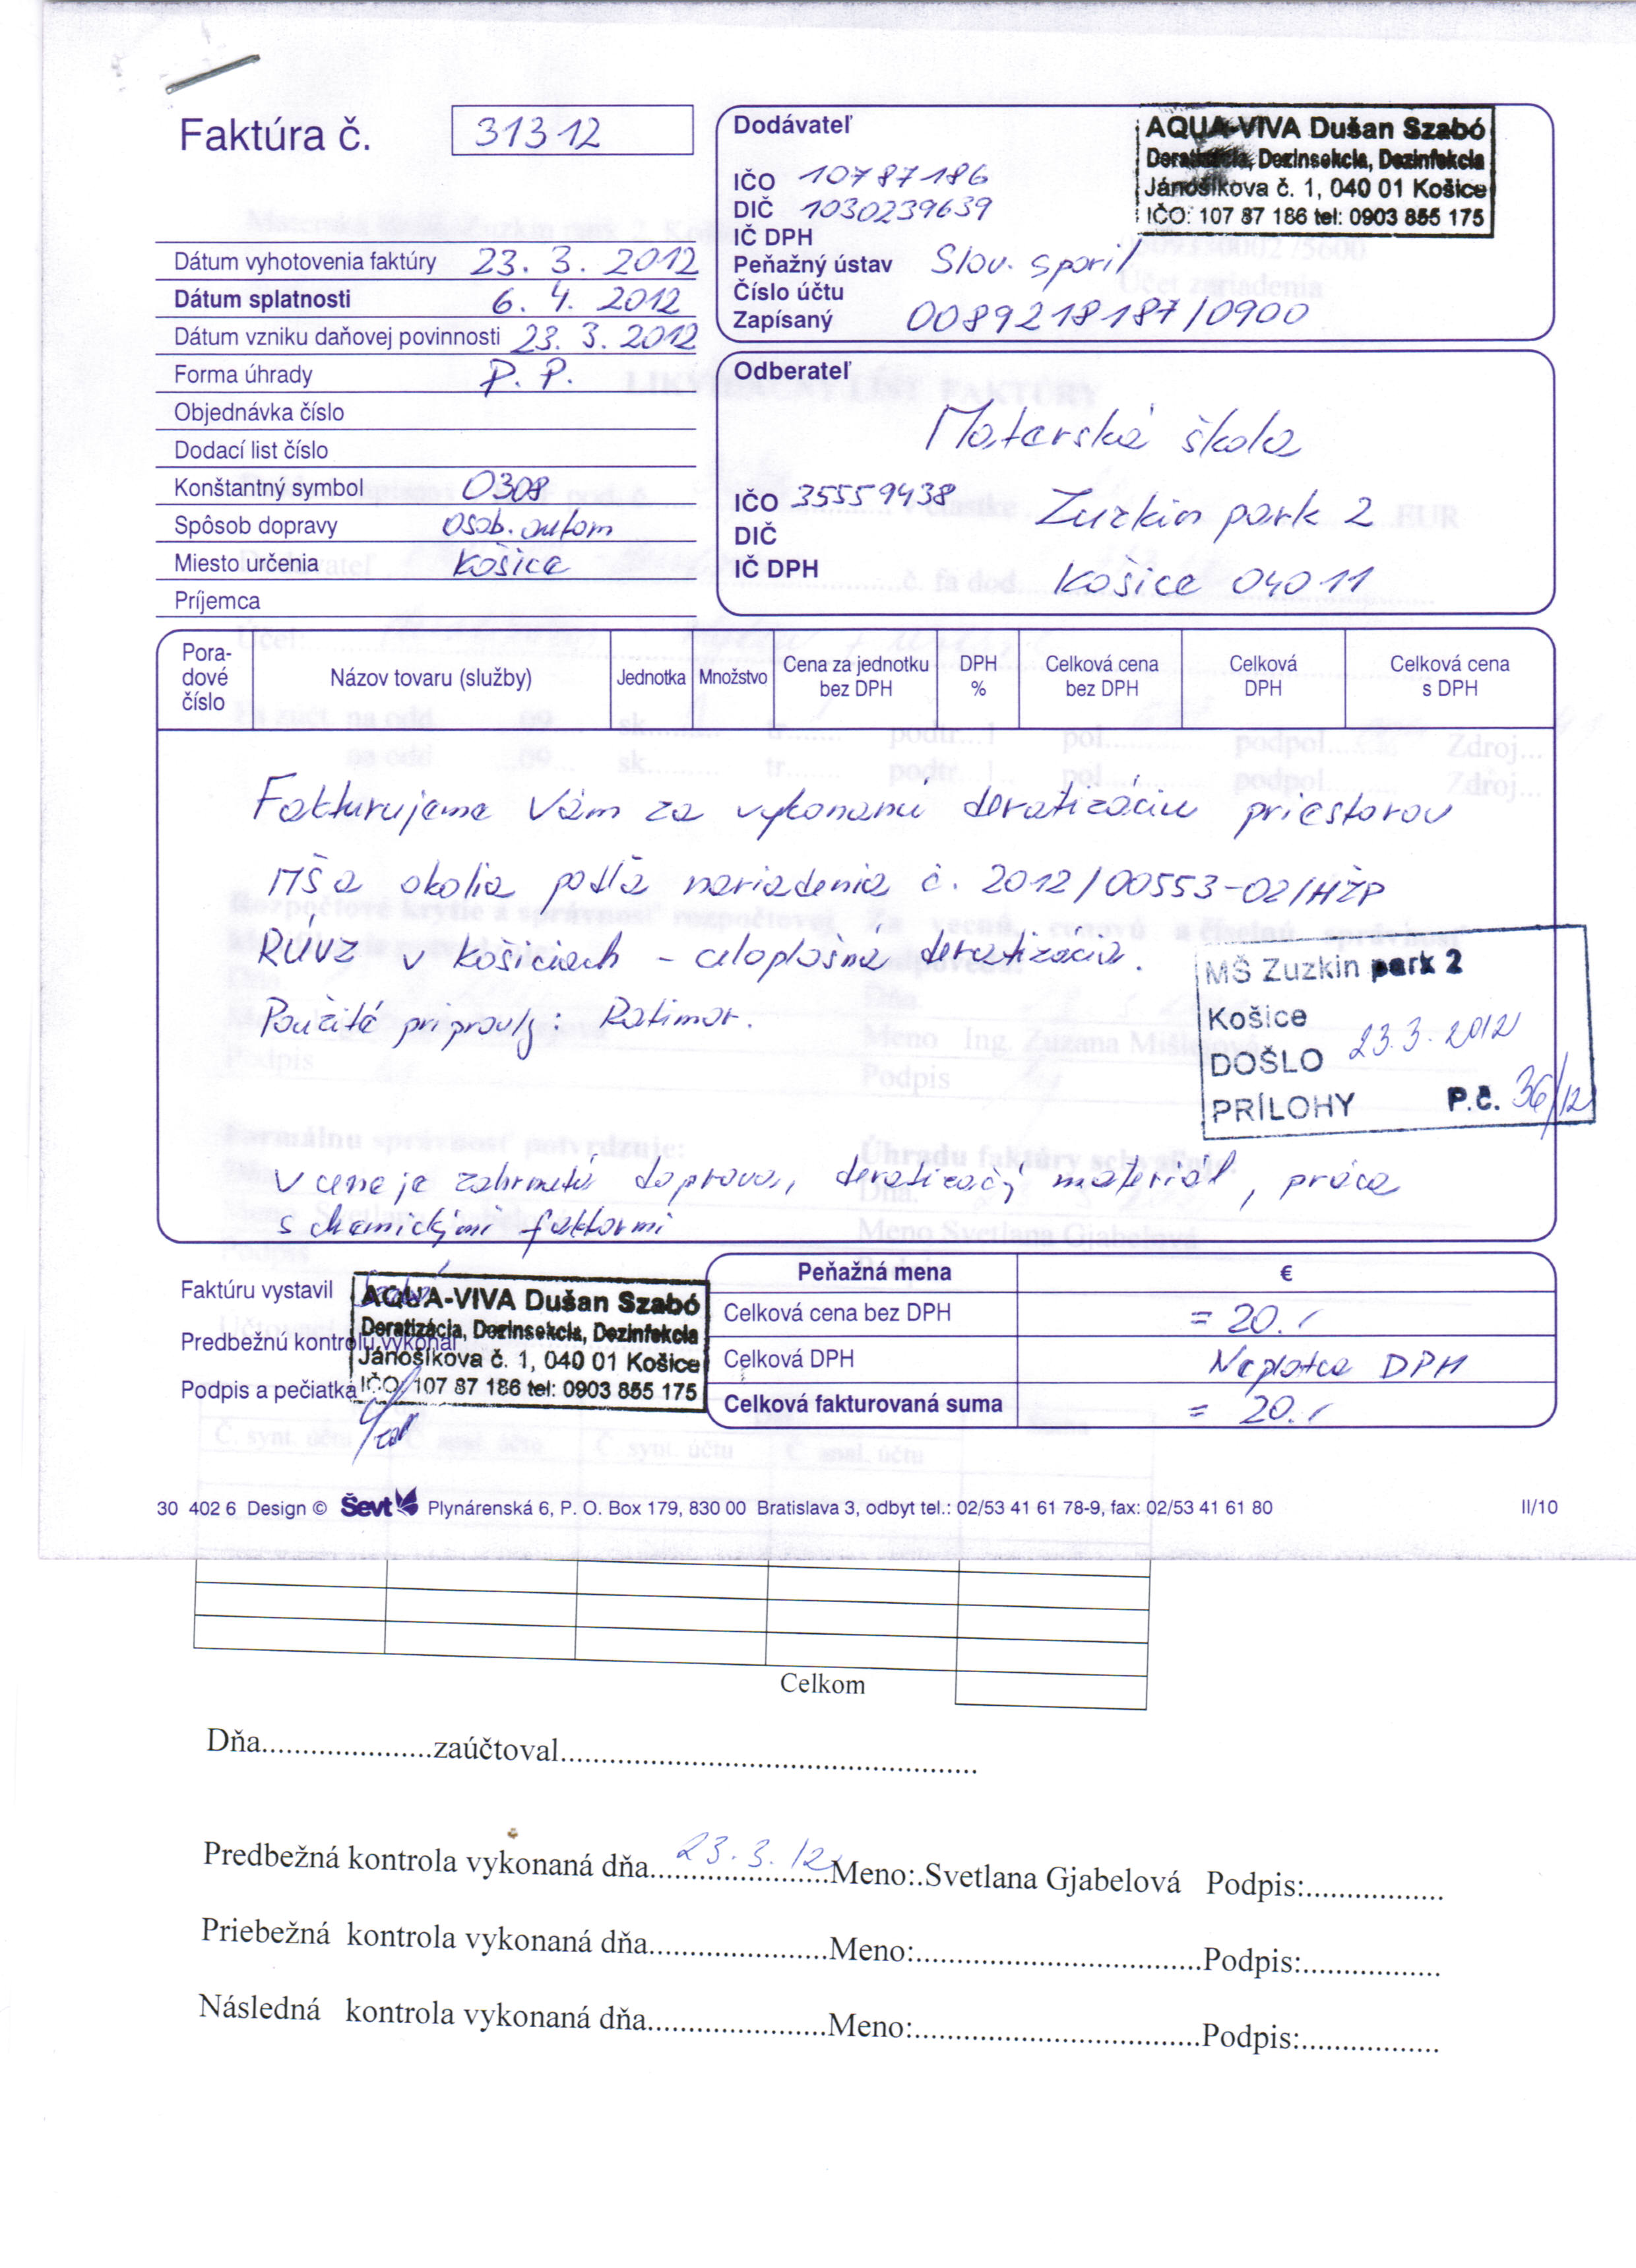 Faktúra č. 31312
Dátum vyhotovenia faktúry 23. 3. 2012
Dátum splatnosti 6. 4. 2012
Dátum vzniku daňovej povinnosti 23. 3. 2012
Forma úhrady P. P.
Objednávka číslo
Dodací list číslo
Konštantný symbol 0308
Spôsob dopravy osob. autom
Miesto určenia Košice
Príjemca
Dodávateľ
AQUA-VIVA Dušan Szabó
Deratizácia, Dezinsekcia, Dezinfekcia
Jánošíkova č. 1, 040 01 Košice
IČO: 107 87 186 tel: 0903 855 175
IČO 10787186
DIČ 1030239639
IČ DPH
Peňažný ústav Slov. sporiť
Číslo účtu
Zapísaný 0089218187/0900
Odberateľ
Materská škola
IČO 35559438 Zuzkin park 2
DIČ
IČ DPH Košice 04011
Pora-
dové
číslo
Názov tovaru (služby)
Jednotka
Množstvo
Cena za jednotku
bez DPH
DPH
%
Celková cena
bez DPH
Celková
DPH
Celková cena
s DPH
Fakturujeme Vám za vykonanú deratizáciu priestorov
MŠ a okolia podľa nariadenia č. 2012/00553-02/HŽP
RÚVZ v Košiciach - celoplošná deratizácia.
Použité prípravky: Ratimor.
MŠ Zuzkin park 2
Košice
DOŠLO 23.3.2012
PRÍLOHY P.č. 36/12
V cene je zahrnutá doprava, deratizačný materiál, práca
s chemickými faktormi
Faktúru vystavil
Predbežnú kontrolu vykonal
Podpis a pečiatka
AQUA-VIVA Dušan Szabó
Deratizácia, Dezinsekcia, Dezinfekcia
Jánošíkova č. 1, 040 01 Košice
IČO: 107 87 186 tel: 0903 855 175
Peňažná mena €
Celková cena bez DPH = 20.-
Celková DPH Neplatca DPH
Celková fakturovaná suma = 20.-
30 402 6 Design © Ševt Plynárenská 6, P. O. Box 179, 830 00 Bratislava 3, odbyt tel.: 02/53 41 61 78-9, fax: 02/53 41 61 80 II/10
Celkom
Dňa.....................zaúčtoval...................................................
Predbežná kontrola vykonaná dňa 23.3.12 Meno:.Svetlana Gjabelová Podpis:.................
Priebežná kontrola vykonaná dňa......................Meno:...................................Podpis:.................
Následná kontrola vykonaná dňa......................Meno:...................................Podpis:.................